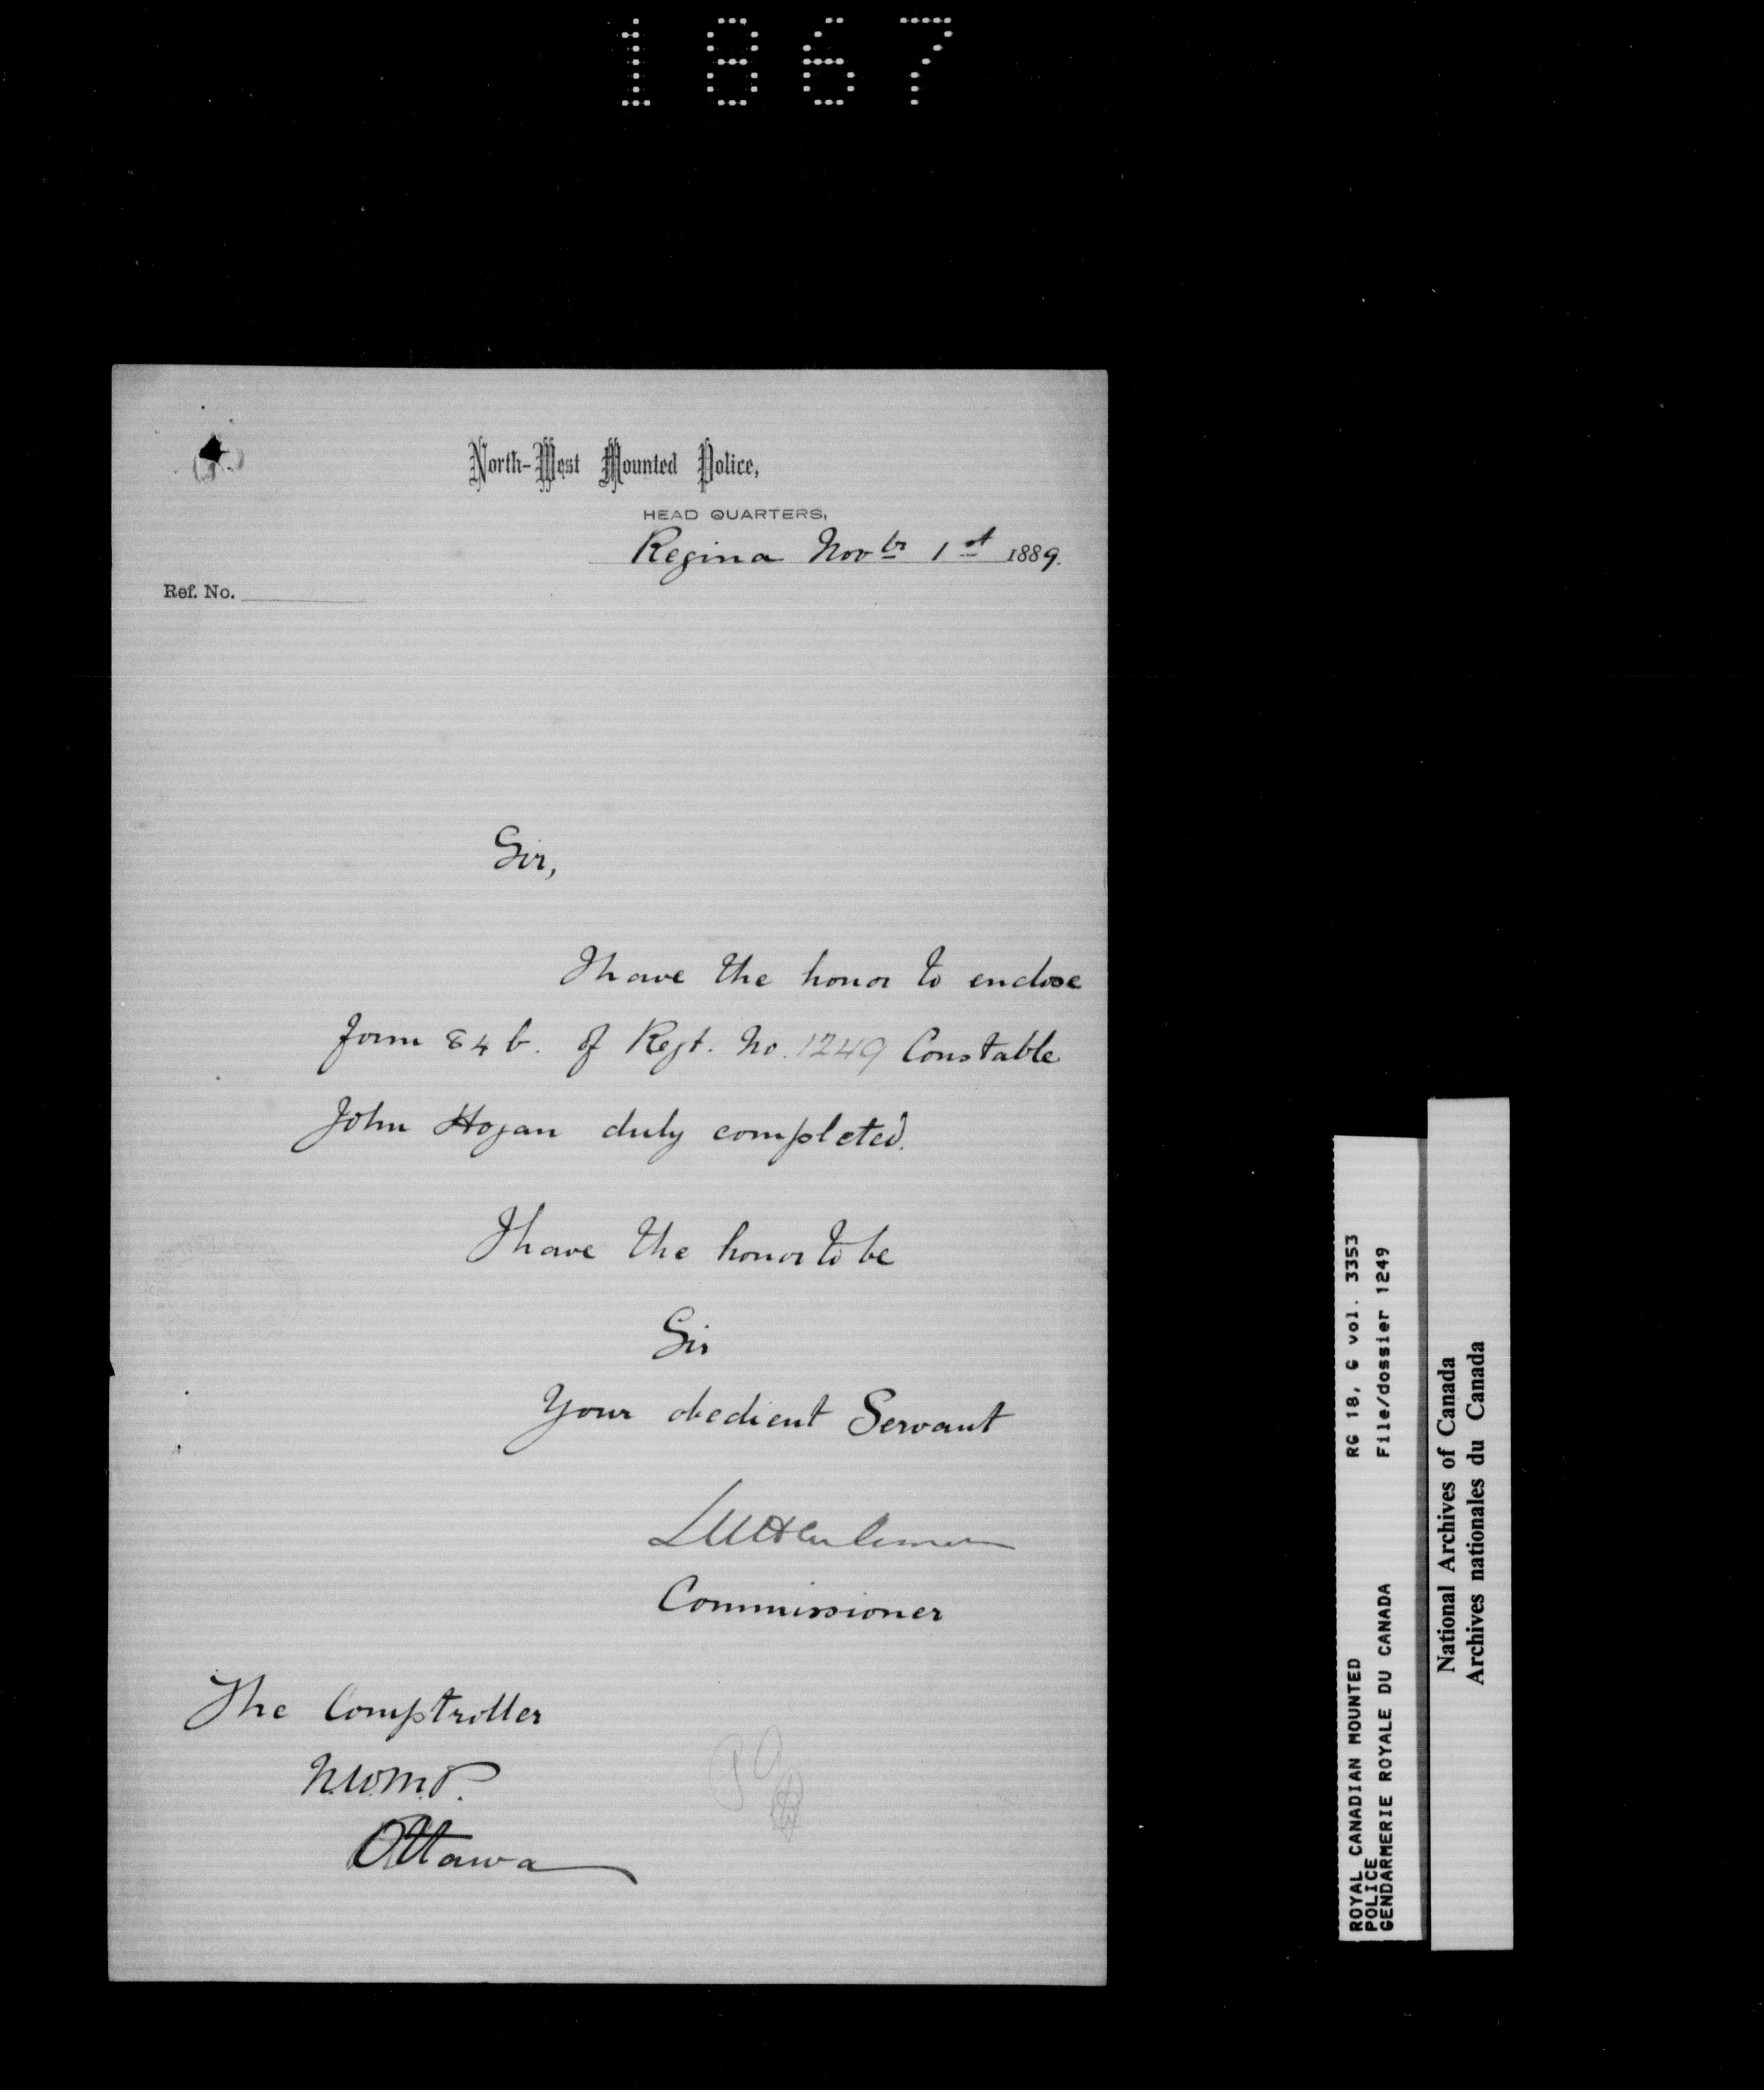 1867
North-West Mounted Police,
HEAD QUARTERS,
Regina Novbr 1st 1889.
Ref. No.
Sir,
I have the honor to enclose
form 84 b. of Regt. No. 1249 Constable
John Hogan duly completed.
I have the honor to be
Sir
Your obedient Servant
Commissioner
The Comptroller
N.W.M.P.
Ottawa
ROYAL CANADIAN MOUNTED RG 18, G vol. 3353
POLICE
GENDARMERIE ROYALE DU CANADA File/dossier 1249
National Archives of Canada
Archives nationales du Canada